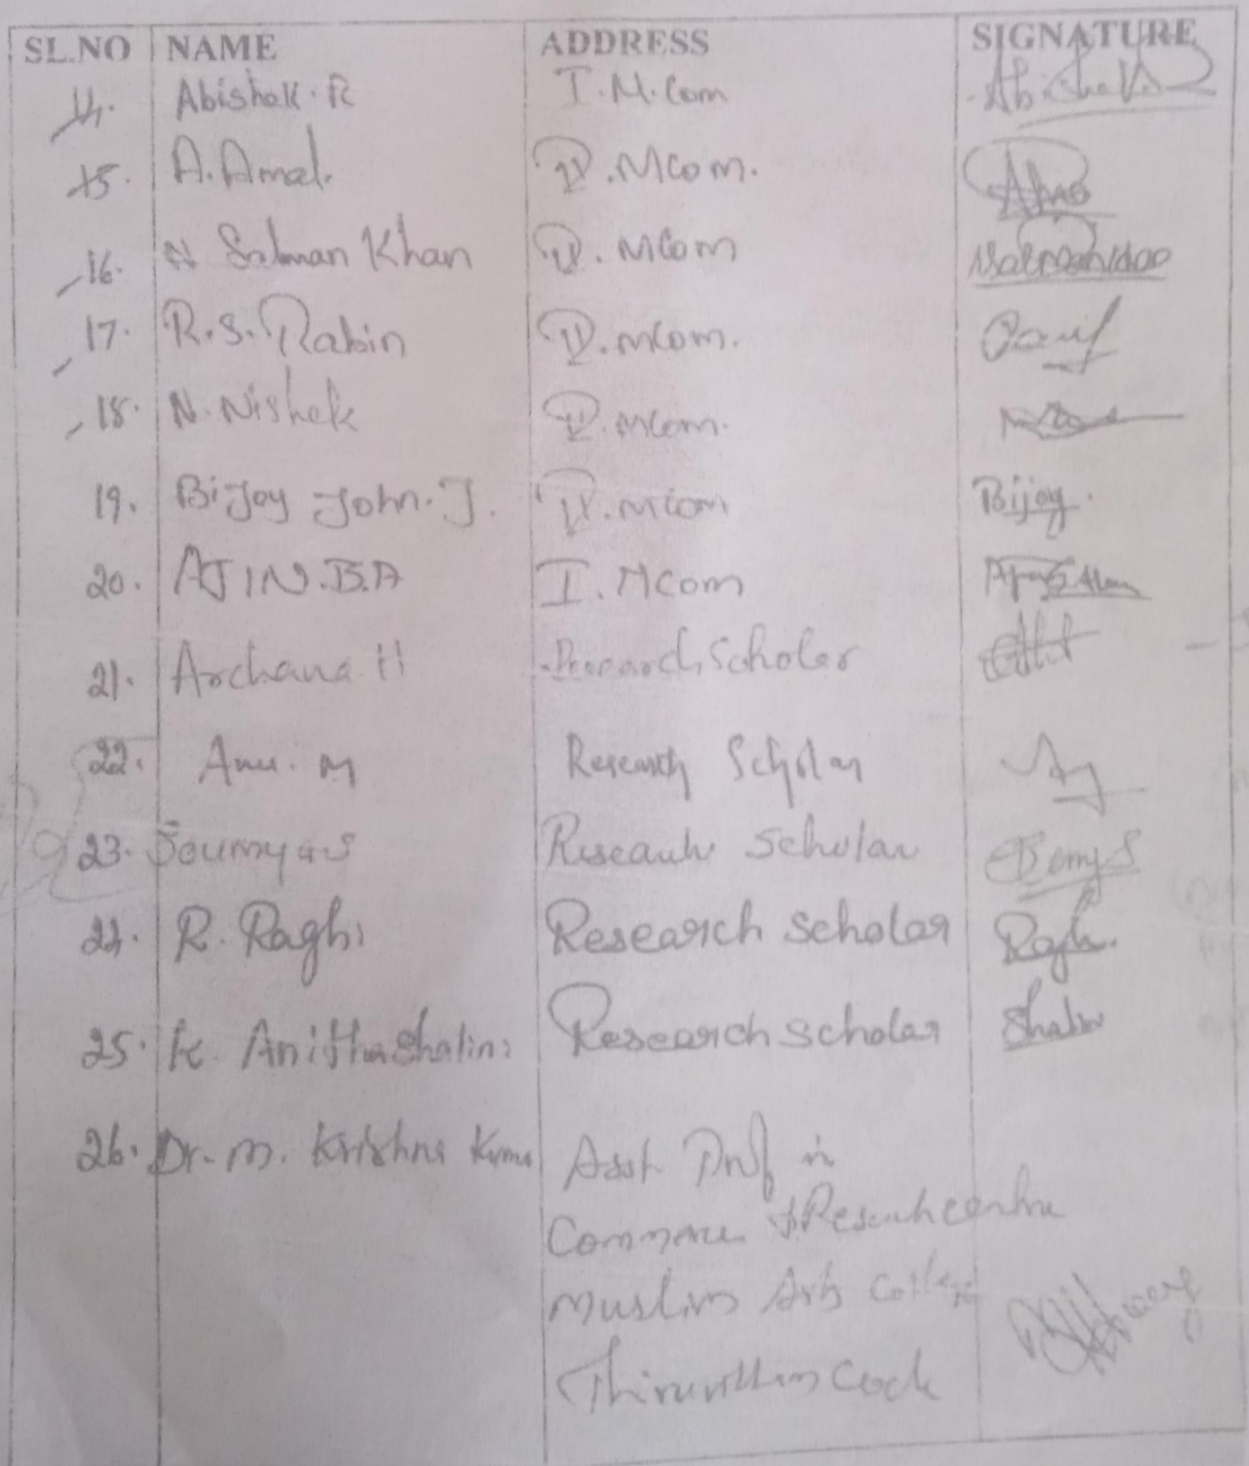 SL.NO NAME ADDRESS SIGNATURE
14. Abishek. R I. M. Com Abishek
15. A. Amal. II. MCom.
16. N Salman Khan II. MCom
17. R.S. Rabin II. MCom.
18. N. Nishak II. MCom.
19. BiJoy John. J. II. MCom Bijoy.
20. AJIN.B.A I. MCom
21. Archana H Research Scholar
22. Anu. M Research Scholar
23. Soumya S Research Scholar
24. R. Raghi Research Scholar Ragh.
25. K. Anitha Shalini Research Scholar Shalini
26. Dr. M. Krishna Kumar Asst Prof in
Commerce & Research centre
Muslim Arts College
Thiruvithancode